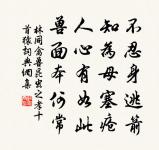 不忍身逃箭
知為母塞瘡
人心有如此
兽面本何常
林同禽兽昆虫之孝十
首猿詞典網集